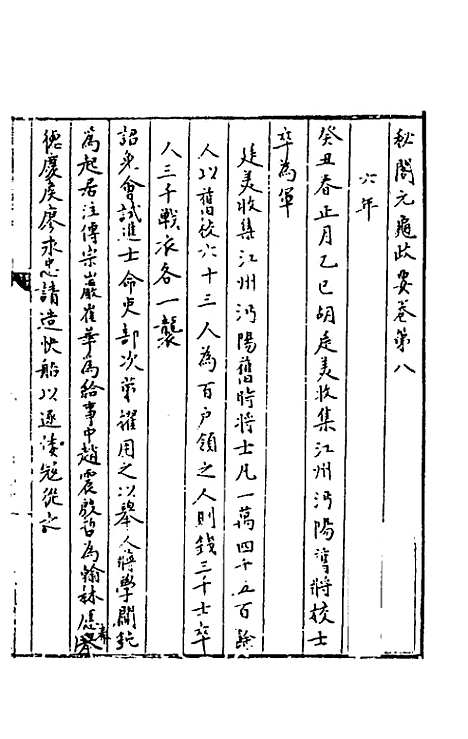 秘閣元龜政要卷第八
六年
癸丑春正月乙巳胡廷美收集江州沔陽舊將校士
卒為軍
廷美收集江州沔陽舊時將士凡一萬四千五百餘
人以舊校六十三人為百戶領之人則錢三千士卒
人三千戰衣各一襲
詔來會試進士命吏部次第擢用之以舉人蔣學閻鈍
為起居注傅宗巖崔華為給事中趙震殷哲為翰林
德慶侯廖永忠請造快船以逐倭寇從之